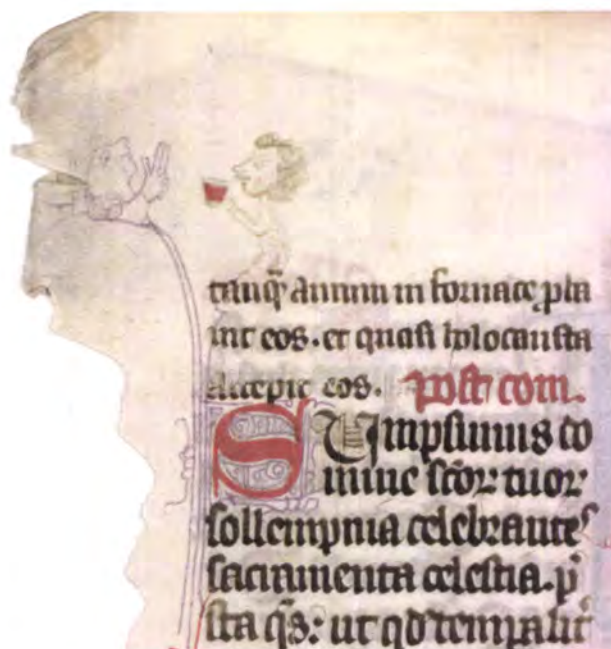 tanq̄ aurum in fornace p̱ba
uit eos. et quasi holocausta
accepit eos. post com.
SUmpsimus do
mine sc̄oꝝ tuoꝝ
sollempnia celebrantes
sacramenta celestia. p̄
sta q̄s: ut qd̄ temp̱alit̄